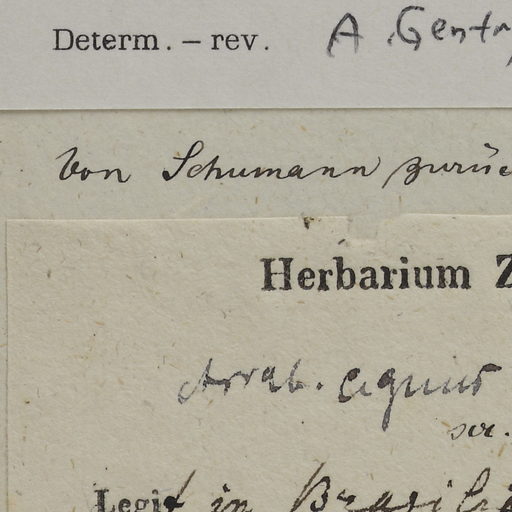 Determ. – rev. A. Gentr
Von Schumann zurüc
Herbarium Z
Arrab.
scr.
Legit in Brasilia